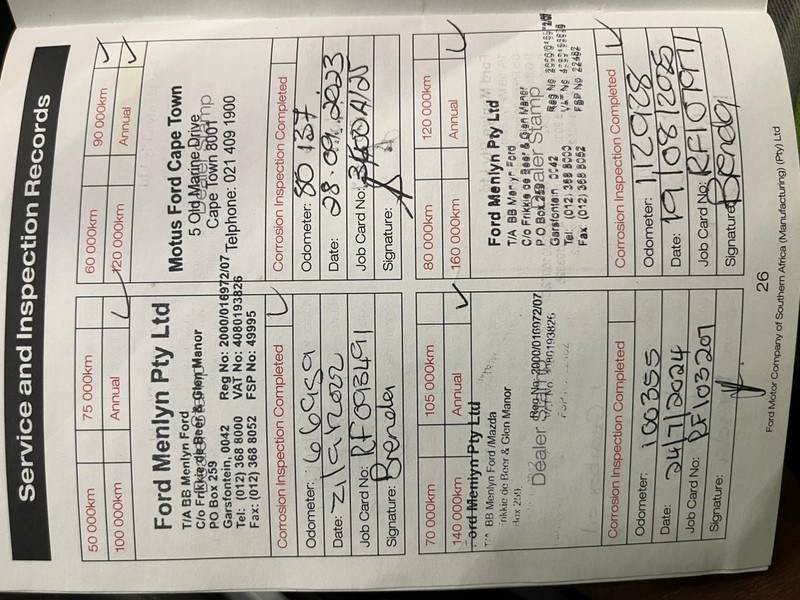 Service and Inspection Records
50 000km 75 000km
100 000km Annual ✓
Ford Menlyn Pty Ltd
T/A BB Menlyn Ford
C/o Frikkie de Beer & Glen Manor
PO Box 259
Garsfontein, 0042 Reg No: 2000/016972/07
Tel: (012) 368 8000 VAT No: 4080193826
Fax: (012) 368 8052 FSP No: 49995
Corrosion Inspection Completed ✓
Odometer:
Date:
Job Card No: RF093491
Signature: Brenda
60 000km 90 000km ✓
120 000km Annual ✓
Motus Ford Cape Town
5 Old Marine Drive
Dealer Stamp
Cape Town 8001
Telphone: 021 409 1900
Corrosion Inspection Completed
Odometer: 80 137
Date: 28.09.2023
Job Card No:
Signature:
70 000km 105 000km
140 000km Annual ✓
Ford Menlyn Pty Ltd
T/A BB Menlyn Ford/Mazda
Frikkie de Beer & Glen Manor
Box 259
Reg No: 2000/016972/07
Dealer Stamp
Corrosion Inspection Completed
Odometer: 100355
Date: 24/7/2024
Job Card No: RF103207
Signature:
80 000km 120 000km
160 000km Annual ✓
Ford Menlyn Pty Ltd
T/A BB Menlyn Ford
C/o Frikkie de Beer & Glen Manor
P O Box 259
Dealer Stamp
Garsfontein 0042
Tel: (012) 368 8000
Fax (012) 368 8052
FSP No 22492
Corrosion Inspection Completed ✓
Odometer: 112928
Date: 19/08/2025
Job Card No: RF107977
Signature: Brenda
26
Ford Motor Company of Southern Africa (Manufacturing) (Pty) Ltd